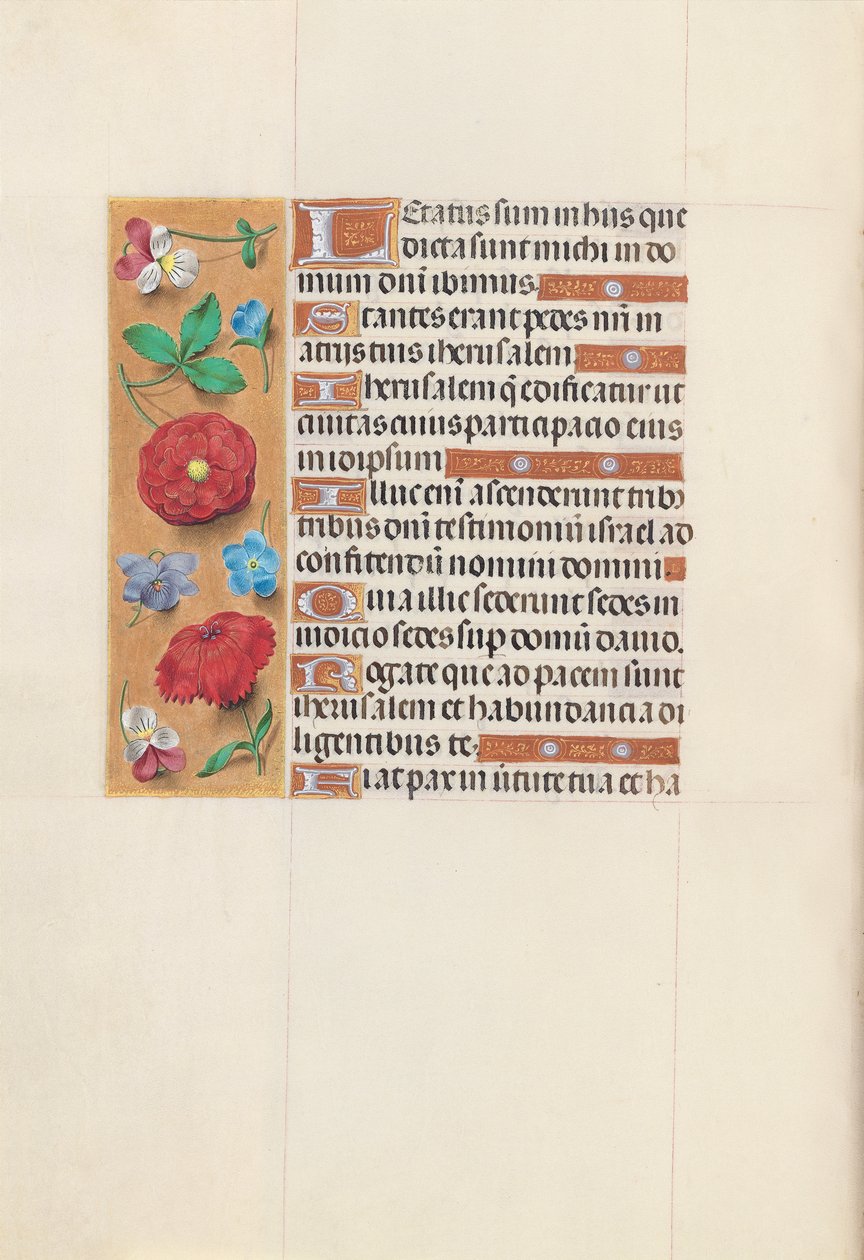 Letatus sum in hiis que
dicta sunt michi in do
mum dnī ibimus.
Stantes erant pedes nrī in
atriis tuis iherusalem
Iherusalem q̄ edificatur ut
civitas cuius participacio eius
in idipsum
Illuc enī ascenderunt tribꝫ
tribus dnī testimoniū israel ad
confitendū nomini domini.
Quia illic sederunt sedes in
iudicio sedes sup domū dauid.
Rogate que ad pacem sunt
iherusalem et habundancia di
ligentibus te.
Fiat pax in v̄tute tua et ha